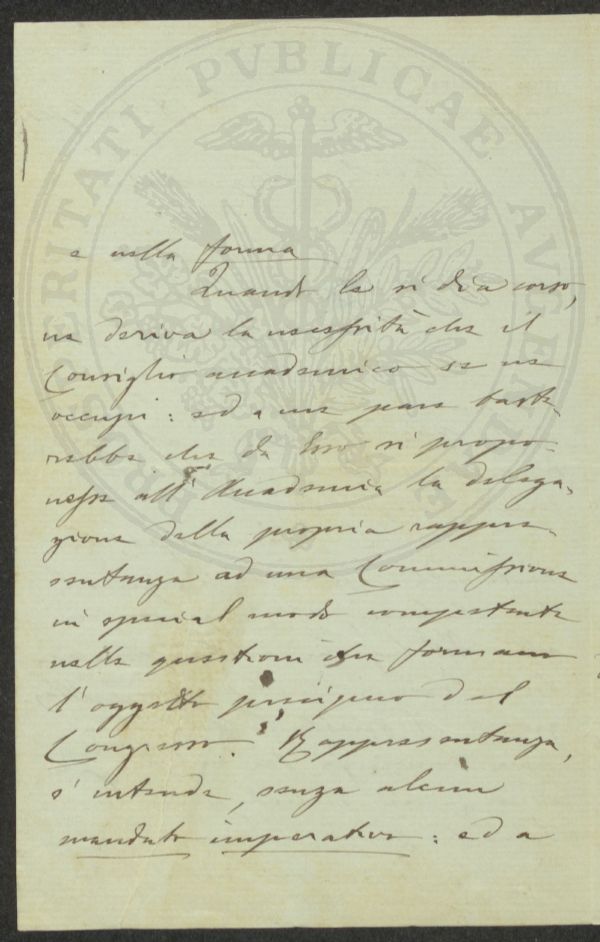 PROSPERITATI PVBLICAE AVGENDAE
e nella forma
Quando le si dia corso,
ne deriva la necessità che il
Consiglio accademico se ne
occupi: ed a me pare baste-
rebbe che da Esso si propo-
nesse all'Accademia la delega-
zione della propria rappre-
sentanza ad una Commissione
in special modo competente
nelle questioni che formano
l'oggetto precipuo del
Congresso. Rappresentanza,
s'intende, senza alcun
mandato imperativo: ed a